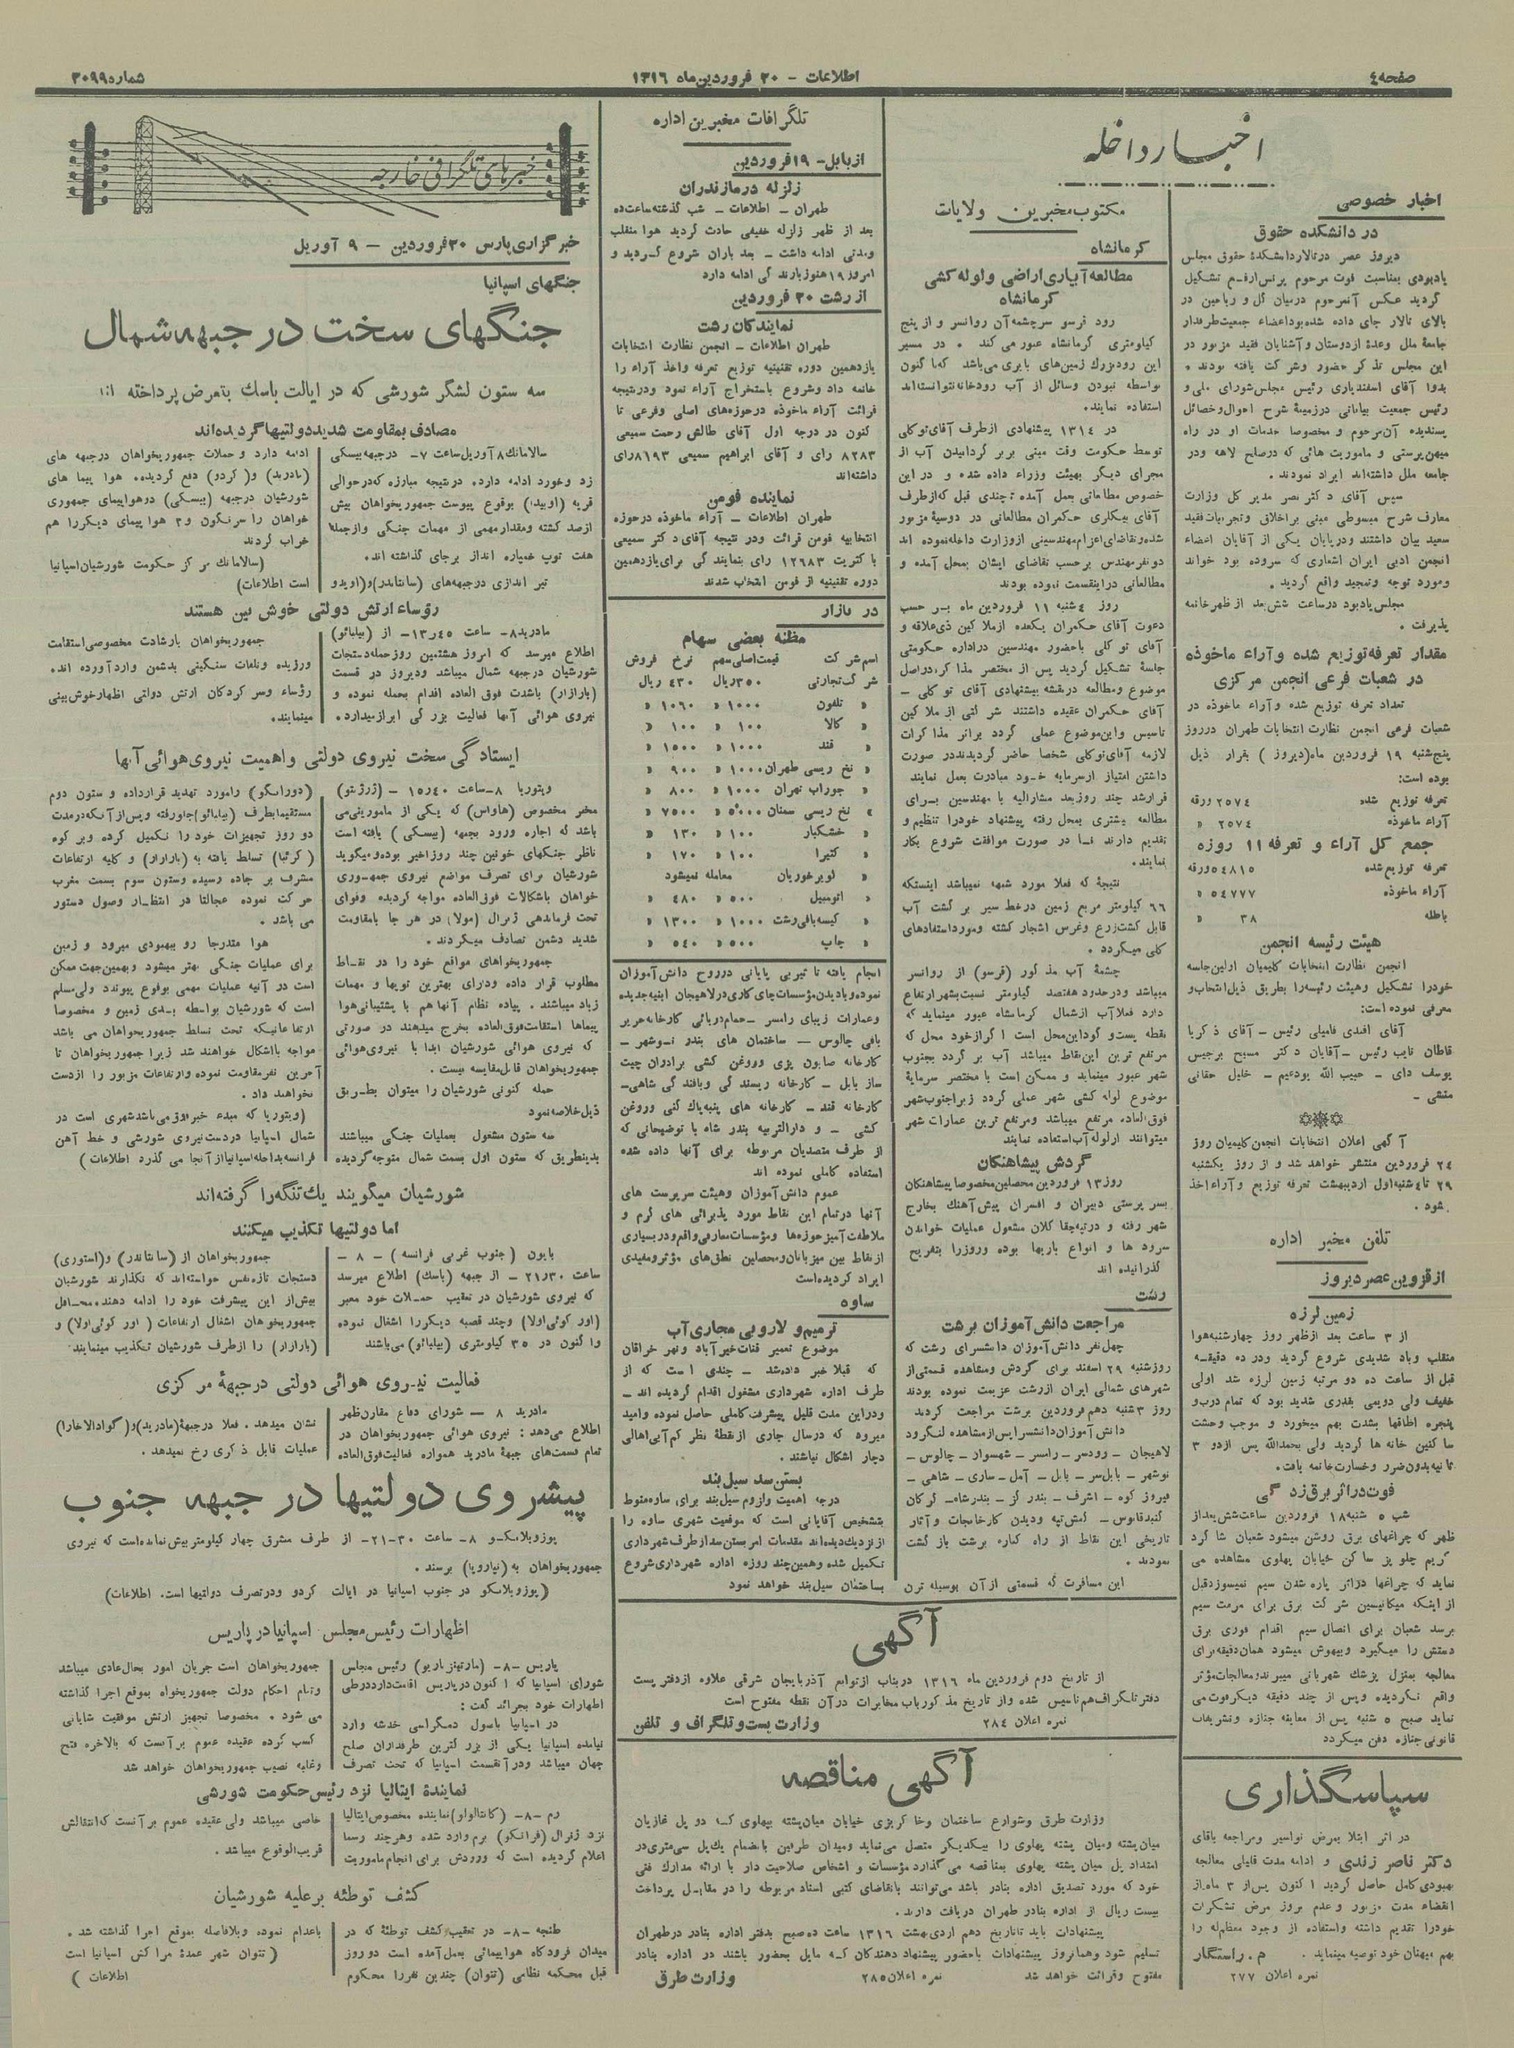 صفحه ٤
اطلاعات - ٢٠ فروردین ماه ١٣١٦
شماره ٣٠٩٩
اخبار داخله
اخبار خصوصی
در دانشکده حقوق
دیروز عصر در تالار دانشکدهٔ حقوق مجلس
یادبودی بمناسبت فوت مرحوم پرنس ارفع تشکیل
گردید عکس آنمرحوم درمیان گل و ریاحین در
بالای تالار جای داده شده بود اعضاء جمعیت طرفدار
جامعهٔ ملل وعدهٔ ازدوستان و آشنایان فقید مزبور در
این مجلس تذکر حضور وشرکت یافته بودند .
بدوا آقای اسفندیاری رئیس مجلس شورای ملی و
رئیس جمعیت بیاناتی درزمینهٔ شرح احوال وخصائل
پسندیده آن مرحوم و مخصوصا خدمات او در راه
میهن پرستی و ماموریت هائی که درصلح لاهه ودر
جامعه ملل داشته‌اند ایراد نمودند.
سپس آقای دکتر نصر مدیر کل وزارت
معارف شرح مبسوطی مبنی بر اخلاق وتجربیات فقید
سعید بیان داشتند ودرپایان یکی از آقایان اعضاء
انجمن ادبی ایران اشعاری که سروده بود خواند
ومورد توجه وتمجید واقع گردید .
مجلس یادبود درساعت شش بعد از ظهر خاتمه
پذیرفت .
مقدار تعرفه توزیع شده و آراء ماخوذه
در شعبات فرعی انجمن مرکزی
تعداد تعرفه توزیع شده وآراء ماخوذه در
شعبات فرعی انجمن نظارت انتخابات طهران درروز
پنجشنبه ١٩ فروردین ماه (دیروز ) بقرار ذیل
بوده است:
تعرفه توزیع شده ٢٥٧٤ ورقه
آراء ماخوذه ٢٥٧٤ »
جمع کل آراء و تعرفه ١١ روزه
تعرفه توزیع شده ٥٤٨١٥ ورقه
آراء ماخوذه ٥٤٧٧٧ »
باطله ٣٨ »
هیئت رئیسه انجمن
انجمن نظارت انتخابات کلیمیان اولین جلسه
خودرا تشکیل وهیئت رئیسه را بطریق ذیل انتخاب و
معرفی نموده است:
آقای افندی فامیلی رئیس - آقای ذکریا
قاطان نایب رئیس - آقایان دکتر مسیح برجیس
یوسف دای - حبیب الله یودعیم - خلیل حقانی
منشی -
آگهی اعلان انتخابات انجمن کلیمیان روز
٢٤ فروردین منتشر خواهد شد و از روز یکشنبه
٢٩ تا ٤ شنبه اول اردیبهشت تعرفه توزیع و آراء اخذ
شود .
تلفن مخبر اداره
از قزوین عصر دیروز
زمین لرزه
از ٣ ساعت بعد ازظهر روز چهارشنبه هوا
منقلب وباد شدیدی شروع گردید ودر ده دقیقه
قبل از ساعت ده دو مرتبه زمین لرزه شد اولی
خفیف ولی دویمی بقدری شدید بود که تمام درب و
پنجره اطاقها بشدت بهم میخورد و موجب وحشت
ساکنین خانه ها گردید ولی بحمدالله پس از دو ٣
ثانیه بدون ضرر وخسارت خاتمه یافت.
فوت در اثر برق زدگی
شب ٥ شنبه ١٨ فروردین ساعت شش بعد از
ظهر که چراغهای برق روشن میشود شعبان شاگرد
کریم چلو پز ساکن خیابان پهلوی مشاهده می
نماید که چراغها دراثر پاره شدن سیم نمیسوزد قبل
از اینکه میکانیسین شرکت برق برای مرمت سیم
برسد شعبان برای اتصال سیم اقدام فوری برق
دستش را میگیرد وبیهوش میشود همان دقیقه برای
معالجه بمنزل پزشک شهربانی میبرند ومعالجات مؤثر
واقع نگردیده وپس از چند دقیقه دیگر فوت می
نماید صبح ٥ شنبه پس از معاینه جنازه وتشریفات
قانونی جنازه دفن میگردد
سپاسگذاری
در اثر ابتلا بمرض نواسیر ومراجعه بآقای
دکتر ناصر زندی و ادامه مدت قلیلی معالجه
بهبودی کامل حاصل گردید اکنون پس از ٣ ماه از
انقضاء مدت مزبور وعدم بروز مرض تشکرات
خودرا تقدیم داشته واستفاده از وجود معظم‌له را
بهم میهنان خود توصیه مینماید . م. راستگار
نمره اعلان ٢٧٧
مکتوب مخبرین ولایات
کرمانشاه
مطالعه آبیاری اراضی و لوله کشی
کرمانشاه
رود قرسو سرچشمه آن روانسر و از پنج
کیلومتری کرمانشاه عبور می کند . در مسیر
این رود بزرگ زمین‌های بایری می‌باشد که تا کنون
بواسطه نبودن وسائل از آب رودخانه نتوانسته‌اند
استفاده نمایند.
در ١٣١٤ پیشنهادی از طرف آقای توکلی
توسط حکومت وقت مبنی بربر گردیدن آب از
مجرای دیگر بهیئت وزراء داده شده و در این
خصوص مطالعاتی بعمل آمده تا چندی قبل که از طرف
آقای بیگلری حکمران مطالعاتی در دوسیهٔ مزبور
شده وتقاضای اعزام مهندسینی ازوزارت داخله نموده اند
دو نفر مهندس برحسب تقاضای ایشان بمحل آمده و
مطالعاتی دراینقسمت نموده بودند
روز ٤ شنبه ١١ فروردین ماه بر حسب
دعوت آقای حکمران یکعده از ملاکین ذی علاقه و
آقای توکلی باحضور مهندسین دراداره حکومتی
جلسهٔ تشکیل گردید پس از مختصر مذاکره دراصل
موضوع ومطالعه درنقشه پیشنهادی آقای توکلی -
آقای حکمران عقیده داشتند شرکتی از ملاکین
تاسیس واین موضوع عملی گردد برابر مذاکرات
لازمه آقای توکلی شخصا حاضر گردیدند در صورت
داشتن امتیاز ازسرمایه خود مبادرت بعمل نمایند
قرارشد چند روز بعد مشارالیه با مهندسین برای
مطالعه بیشتری بمحل رفته پیشنهاد خودرا تنظیم و
تقدیم دارند تا در صورت موافقت شروع بکار
نمایند.
نتیجهٔ که فعلا مورد شبهه نمیباشد اینستکه
٦٦ کیلومتر مربع زمین درخط سیر برگشت آب
قابل کشت زرع وغرس اشجار گشته ومورد استفاده‌های
کلی میگردد .
چشمهٔ آب مذکور (قرسو) از روانسر
میباشد ودرحدود هفتصد کیلومتر نسبت بشهر ارتفاع
دارد فعلا آب ازشمال کرمانشاه عبور مینماید که
نقطه پست و گود این محل است اگر از خود محل که
مرتفع ترین این نقاط میباشد آب بر گردد بجنوب
شهر عبور مینماید و ممکن است با مختصر سرمایهٔ
موضوع لوله کشی شهر عملی گردد زیرا جنوب شهر
فوق‌العاده مرتفع میباشد ومرتفع ترین عمارات شهر
میتوانند ازلوله آب استفاده نمایند
گردش پیشاهنگان
روز ١٣ فروردین محصلین مخصوصا پیشاهنگان
بسر پرستی دبیران و افسران پیش آهنگ بخارج
شهر رفته و درتپه چقاکلان مشغول عملیات خواندن
سرود ها و انواع بازیها بوده وروزرا بتفریح
گذرانیده اند
رشت
مراجعت دانش آموزان برشت
چهل نفر دانش آموزان دانشسرای رشت که
روز شنبه ٢٩ اسفند برای گردش ومشاهده قسمتی از
شهرهای شمالی ایران از رشت عزیمت نموده بودند
روز ٣ شنبه دهم فروردین برشت مراجعت کردند
دانش آموزان دانشسرا پس از مشاهده لنگرود
لاهیجان - رودسر - رامسر - شهسوار - چالوس -
نوشهر - بابل‌سر - بابل - آمل - ساری - شاهی -
فیروز کوه - اشرف - بندر گز - بندر شاه - گرگان
گنبد قابوس - گمش تپه ودیدن کارخانجات وآثار
تاریخی این نقاط از راه کناره برشت باز گشت
نمودند .
این مسافرت که قسمتی از آن بوسیله ترن
تلگرافات مخبرین اداره
از بابل - ١٩ فروردین
زلزله در مازندران
طهران - اطلاعات - شب گذشته ساعت ده
بعد از ظهر زلزله خفیفی حادث گردید هوا منقلب
ومدتی ادامه داشت - بعد باران شروع گردید و
امروز ١٩ هنوز بارندگی ادامه دارد
از رشت ٢٠ فروردین
نمایندگان رشت
طهران اطلاعات - انجمن نظارت انتخابات
یازدهمین دوره تقنینیه توزیع تعرفه واخذ آراء را
خاتمه داد وشروع باستخراج آراء نمود ودرنتیجه
قرائت آراء ماخوذه درحوزه‌های اصلی وفرعی تا
کنون در درجه اول آقای طالش رحمت سمیعی
٨٢٨٣ رای و آقای ابراهیم سمیعی ٨١٩٣ رای
داشته‌اند
نماینده فومن
طهران اطلاعات - آراء ماخوذه درحوزه
انتخابیه فومن قرائت ودر نتیجه آقای دکتر سمیعی
با کثریت ١٢٦٨٣ رای بنمایندگی برای یازدهمین
دوره تقنینیه از فومن انتخاب شدند
در بازار
مظنه بعضی سهام
اسم شرکت قیمت اصلی سهم نرخ فروش
شرکت تجارتی ٣٥٠ ریال ٤٣٠ ریال
» تلفون ١٠٠٠ » ١٠٦٠ »
» کالا ١٠٠ » ١٠٠ »
» قند ١٠٠٠ » ١٥٠٠ »
» نخ ریسی طهران ١٠٠٠ » ٩٠٠ »
» جوراب تهران ١٠٠٠ » ٨٠٠ »
» نخ ریسی سمنان ٥٠٠٠ » ٧٥٠٠ »
» خشکبار ١٠٠ » ١٣٠ »
» کتیرا ١٠٠ » ١٧٠ »
» لویر خوریان معامله نمیشود
» اتومبیل ٥٠٠ » ٤٨٠ »
» کیسه بافی رشت ١٠٠٠ » ١٣٠٠ »
» چاپ ٥٠٠ » ٥٤٠ »
انجام یافته تاثیر بی پایانی درروح دانش آموزان
نموده وبادیدن مؤسسات چای کاری درلاهیجان ابنیه جدیده
وعمارات زیبای رامسر - حمام دریائی کارخانه حریر
بافی چالوس - ساختمان های بندر نوشهر -
کارخانه صابون پزی وروغن کشی برادران چیت
ساز بابل - کارخانه ریسندگی وبافندگی شاهی -
کارخانه قند - کارخانه های پنبه پاک کنی وروغن
کشی - و دارالتربیه بندر شاه با توضیحاتی که
از طرف متصدیان مربوطه برای آنها داده شده
استفاده کاملی نموده اند
عموم دانش آموزان وهیئت سرپرست های
آنها درتمام این نقاط مورد پذیرائی های گرم و
ملاطفت آمیز حوزه‌ها ومؤسسات معارفی واقع ودر بسیاری
از نقاط بین میزبانان ومحصلین نطق‌های مؤثر ومفیدی
ایراد گردیده است
ساوه
ترمیم و لاروبی مجاری آب
موضوع تعمیر قنات خیر آباد ونهر خراقان
که قبلا خبر داده شد - چندی است که از
طرف اداره شهرداری مشغول اقدام گردیده اند -
ودراین مدت قلیل پیشرفت کاملی حاصل نموده وامید
میرود که درسال جاری از نقطهٔ نظر کم آبی اهالی
دچار اشکال نباشند .
بستن سد سیل بند
درجه اهمیت ولزوم سیل بند برای ساوه منوط
بتشخیص آقایانی است که موقعیت شهری ساوه را
از نزدیک دیده‌اند مقدمات امر بستن سد از طرف شهرداری
تکمیل شده وهمین چند روزه اداره شهرداری شروع
بساختمان سیل بند خواهد نمود
آگهی
از تاریخ دوم فروردین ماه ١٣١٦ در بناب از توابع آذربایجان شرقی علاوه ازدفتر پست
دفتر تلگراف هم تاسیس شده واز تاریخ مذکور باب مخابرات درآن نقطه مفتوح است
نمره اعلان ٢٨٤ وزارت پست و تلگراف و تلفن
آگهی مناقصه
وزارت طرق وشوارع ساختمان وخاکریزی خیابان میان‌پشته بپهلوی که دو پل غازیان
میان پشته ومیان پشته پهلوی را بیکدیگر متصل می‌نماید ومیدان طرفین بانضمام یک پل سی متری در
امتداد پل میان پشته پهلوی بمناقصه می‌گذارد مؤسسات و اشخاص صلاحیت دار با ارائه مدارک فنی
خود که مورد تصدیق اداره بنادر باشد می‌توانند باتقاضای کتبی اسناد مربوطه را در مقابل پرداخت
بیست ریال از اداره بنادر طهران دریافت دارند .
پیشنهادات باید تا تاریخ دهم اردیبهشت ١٣١٦ ساعت ده صبح بدفتر اداره بنادر درطهران
تسلیم شود وهمانروز پیشنهادات باحضور پیشنهاد دهندگان که مایل بحضور باشند در اداره بنادر
مفتوح وقرائت خواهد شد نمره اعلان ٢٨٥ وزارت طرق
خبرهای تلگرافی خارجه
خبرگزاری پارس ٢٠ فروردین - ٩ آوریل
جنگهای اسپانیا
جنگهای سخت در جبهه شمال
سه ستون لشگر شورشی که در ایالت باسک بتعرض پرداخته اند
مصادف بمقاومت شدید دولتیها گردیده‌اند
سالامانک ٨ آوریل ساعت ٧- درجبهه بیسکی
زد وخورد ادامه دارد. درنتیجه مبارزه که درحوالی
قریه (اوبیدا) بوقوع پیوست جمهوریخواهان بیش
از صد کشته ومقدار مهمی از مهمات جنگی وازجمله
هفت توپ خمپاره انداز برجای گذاشته اند.
تیر اندازی درجبهه‌های (سانتاندر) و (اویدو)
ادامه دارد و حملات جمهوریخواهان درجبهه های
(مادرید) و (کردو) دفع گردیده. هوا پیما های
شورشیان درجبهه (بیسکی) دو هواپیمای جمهوری
خواهان را سرنگون و ٣ هواپیمای دیگر را هم
خراب کردند
(سالامانک مرکز حکومت شورشیان اسپانیا
است اطلاعات)
رؤساء ارتش دولتی خوش بین هستند
مادرید ٨- ساعت ١٣٫٤٥ - از (بیلبائو)
اطلاع میرسد که امروز هشتمین روز حمله دستجات
شورشیان درجبهه شمال میباشد ودیروز در قسمت
(بارازار) باشدت فوق العاده اقدام بحمله نموده و
نیروی هوائی آنها فعالیت بزرگی ابراز میدارد.
جمهوریخواهان بارشادت مخصوصی استقامت
ورزیده وتلفات سنگینی بدشمن وارد آورده اند.
رؤساء وسر کردگان ارتش دولتی اظهار خوش بینی
مینمایند.
ایستادگی سخت نیروی دولتی و اهمیت نیروی هوائی آنها
ویتوریا ٨-ساعت ١٥٫٤٠ - (ژرژبتو)
مخبر مخصوص (هاواس) که یکی از مامورینی می
باشد که اجازه ورود بجبهه (بیسکی) یافته است
ناظر جنگهای خونین چند روز اخیر بوده ومیگوید
شورشیان برای تصرف مواضع نیروی جمهوری
خواهان باشکالات فوق‌العاده مواجه گردیده وقوای
تحت فرماندهی ژنرال (مولا) در هر جا بامقاومت
شدید دشمن تصادف میکردند .
جمهوریخواهان مواقع خود را در نقاط
مطلوب قرار داده ودارای بهترین توپها و مهمات
زیاد میباشند . پیاده نظام آنها هم با پشتیبانی هوا
پیماها استقامت فوق‌العاده بخرج میدهند در صورتی
که نیروی هوائی شورشیان ابدا با نیروی هوائی
جمهوریخواهان قابل مقایسه نیست .
حمله کنونی شورشیان را میتوان بطریق
ذیل خلاصه نمود
سه ستون مشغول بعملیات جنگی میباشند
بدینطریق که ستون اول بسمت شمال متوجه گردیده
(دورانگو) رامورد تهدید قرارداده و ستون دوم
مستقیما بطرف (بیلبائو) جلو رفته وپس از آنکه درمدت
دو روز تجهیزات خود را تکمیل کرده وبر کوه
(گرئیا) تسلط یافته به (بارازار) و کلیه ارتفاعات
مشرف بر جاده رسیده وستون سوم بسمت مغرب
حرکت نموده عجالتا در انتظار وصول دستور
می باشد .
هوا متدرجا رو ببهبودی میرود و زمین
برای عملیات جنگی بهتر میشود وبهمین جهت ممکن
است در آتیه عملیات مهمی بوقوع بپیوندد ولی مسلم
است که شورشیان بواسطه بلندی زمین و مخصوصا
ارتفاعاتیکه تحت تسلط جمهوریخواهان می باشد
مواجه با اشکال خواهند شد زیرا جمهوریخواهان تا
آخرین نفر مقاومت نموده وارتفاعات مزبور را از دست
نخواهند داد .
(ویتوریا که مبدء خبر فوق می‌باشد شهری است در
شمال اسپانیا دردست نیروی شورشی و خط آهن
فرانسه بداخله اسپانیا از آنجا می گذرد اطلاعات )
شورشیان میگویند یک تنگه را گرفته‌اند
اما دولتیها تکذیب میکنند
بایون (جنوب غربی فرانسه ) - ٨ -
ساعت ٢١٫٣٠ - از جبهه (باسک) اطلاع میرسد
که نیروی شورشیان در تعقیب حملات خود معبر
(اورکوئی‌اولا) وچند قصبه دیگر را اشغال نموده
واکنون در ٣٥ کیلومتری (بیلبائو) می‌باشند
جمهوریخواهان از (سانتاندر) و (استوری)
دستجات تازه نفس خواسته‌اند که نگذارند شورشیان
بیش از این پیشرفت خود را ادامه دهند. محافل
جمهوریخواهان اشغال ارتفاعات (اورکوئی‌اولا) و
(بارازار) را از طرف شورشیان تکذیب مینمایند
فعالیت نیروی هوائی دولتی در جبههٔ مرکزی
مادرید ٨ - شورای دفاع مقارن ظهر
اطلاع می‌دهد: نیروی هوائی جمهوریخواهان در
تمام قسمت‌های جبههٔ مادرید همواره فعالیت فوق‌العاده
نشان میدهد. فعلا درجبهه (مادرید) و (گوادالاخارا)
عملیات قابل ذکری رخ نمیدهد.
پیشروی دولتیها در جبهه جنوب
پوزوبلانکو ٨- ساعت ٣٠-٢١- از طرف مشرق چهار کیلومتر بیش نمانده است که نیروی
جمهوریخواهان به (نیارویا) برسند .
(پوزوبلانکو در جنوب اسپانیا در ایالت کردو ودرتصرف دولتیها است. اطلاعات)
اظهارات رئیس مجلس اسپانیا در پاریس
پاریس -٨- (مارتینز باریو) رئیس مجلس
شورای اسپانیا که اکنون درپاریس اقامت دارد درطی
اظهارات خود بجرائد گفت :
در اسپانیا باصول دمکراسی خدشه وارد
نیامده اسپانیا یکی از بزرگترین طرفداران صلح
جهان میباشد ودر آنقسمت اسپانیا که تحت تصرف
جمهوریخواهان است جریان امور بحال عادی میباشد
وتمام احکام دولت جمهوریخواه بموقع اجرا گذاشته
می شود . مخصوصا تجهیز ارتش موفقیت شایانی
کسب کرده عقیده عموم بر آنست که بالاخره فتح
وغلبه نصیب جمهوریخواهان خواهد شد
نمایندهٔ ایتالیا نزد رئیس حکومت شورشی
رم -٨- (کانتالوپو) نماینده مخصوص ایتالیا
نزد ژنرال (فرانکو) برم وارد شده وهر چند رسما
اعلام گردیده است که ورودش برای انجام ماموریت
خاصی میباشد ولی عقیده عموم بر آنست که انتقالش
قریب‌الوقوع میباشد .
کشف توطئه بر علیه شورشیان
طنجه -٨- در تعقیب کشف توطئهٔ که در
میدان فرودگاه هواپیمائی بعمل آمده است دو روز
قبل محکمه نظامی (تتوان) چندین نفر را محکوم
باعدام نموده وبلافاصله بموقع اجرا گذاشته شد .
( تتوان شهر عمدهٔ مراکش اسپانیا است
اطلاعات )